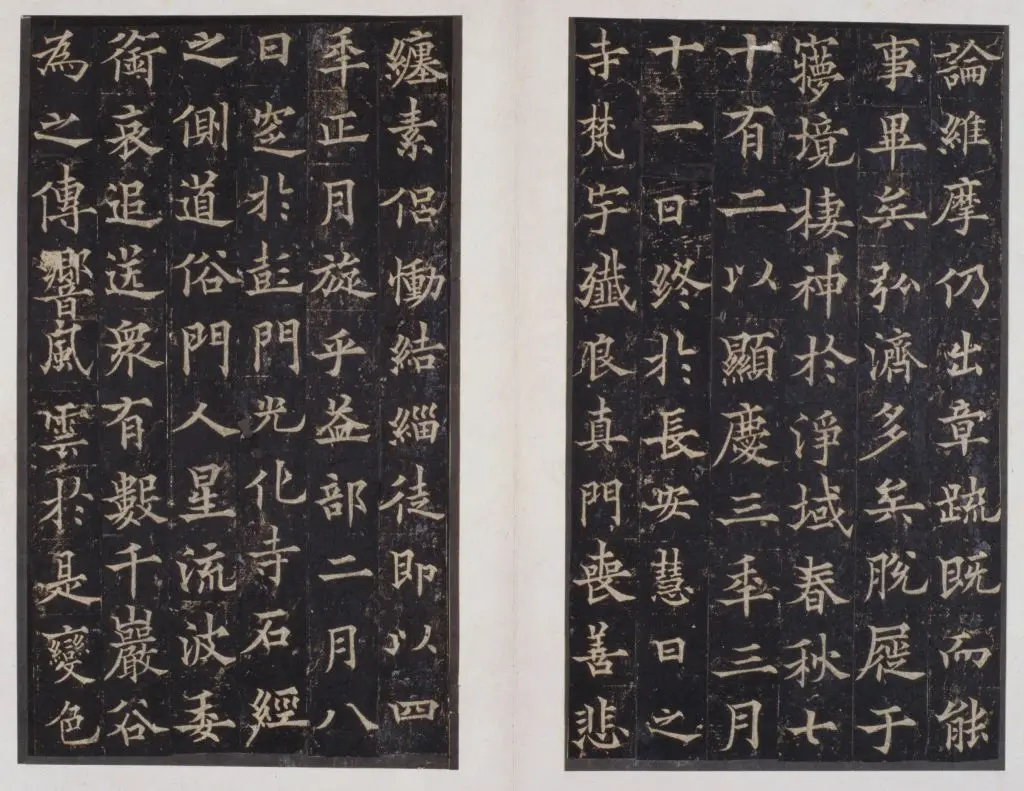 論維摩仍出章疏既而能
事畢矣弘濟多矣脫屣于
㝱境棲神於淨域春秋七
十有二以顯慶三年三月
十一日終於長安慧日之
寺梵宇殲良真門喪善悲
纏素侶慟結緇徒即以四
年正月旋乎益部二月八
日窆於彭門光化寺石經
之側道俗門人星流波委
銜哀追送眾有數千巖谷
為之傳響風雲於是變色